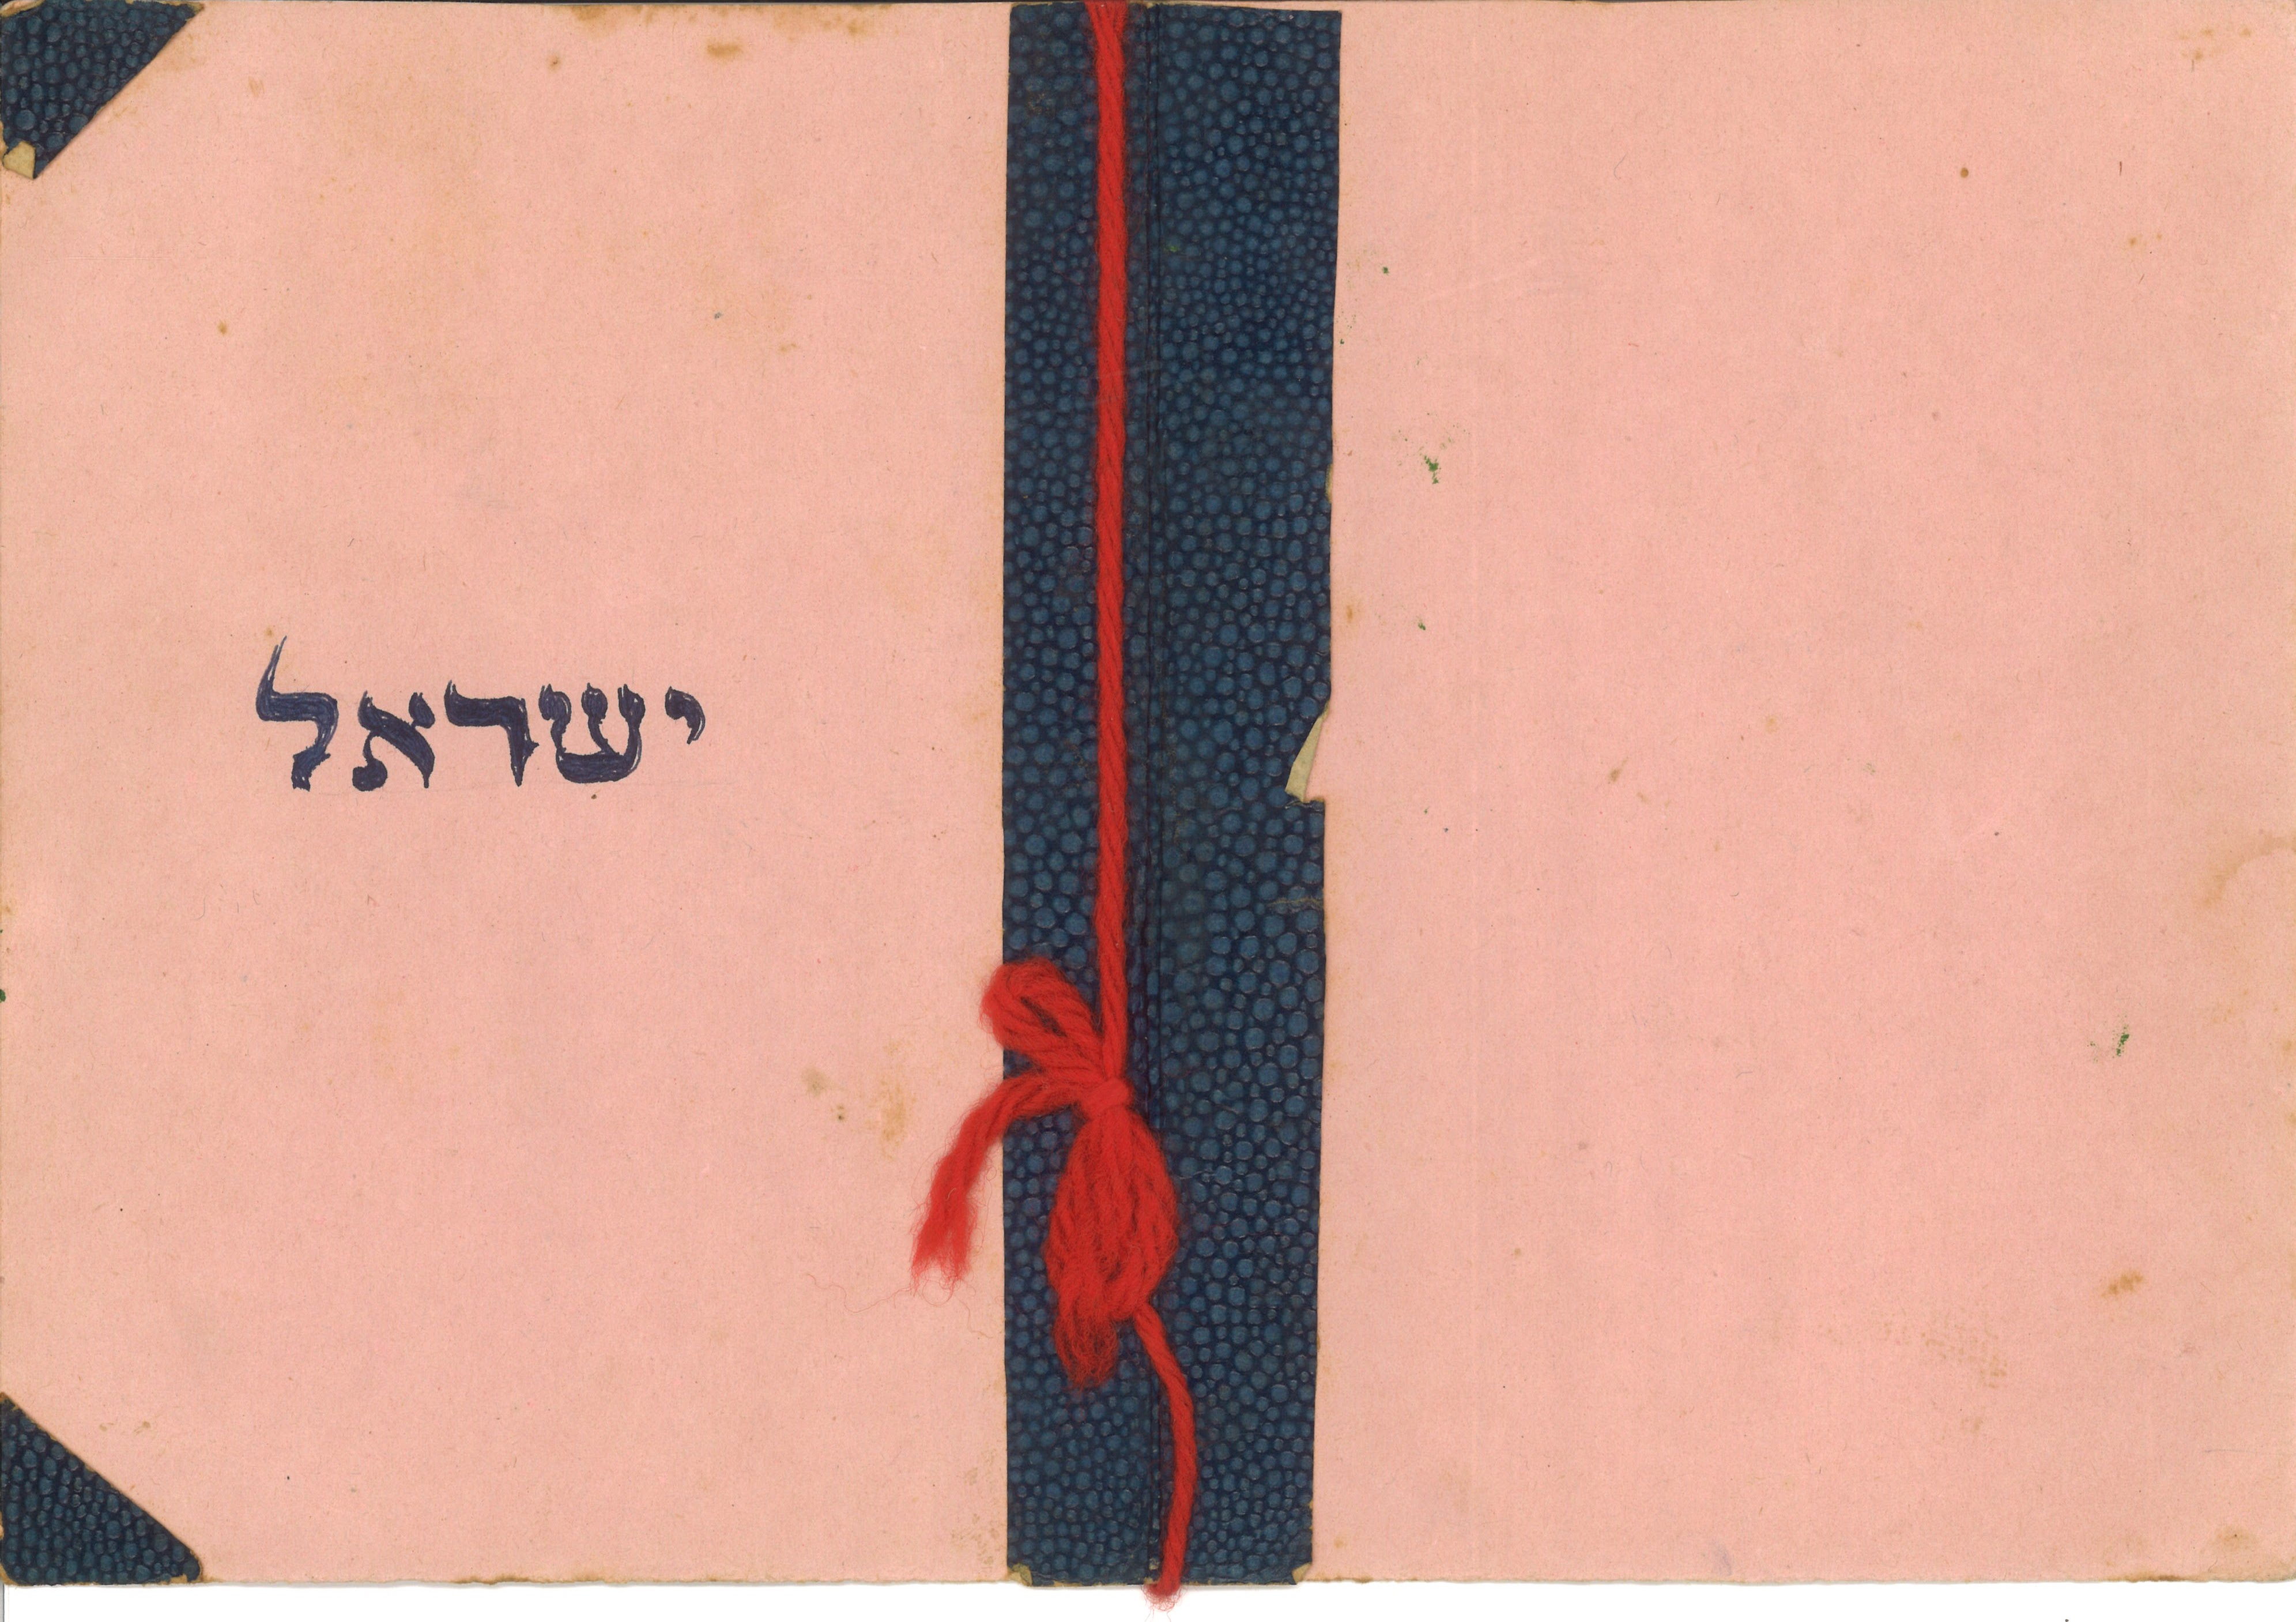 ישראל